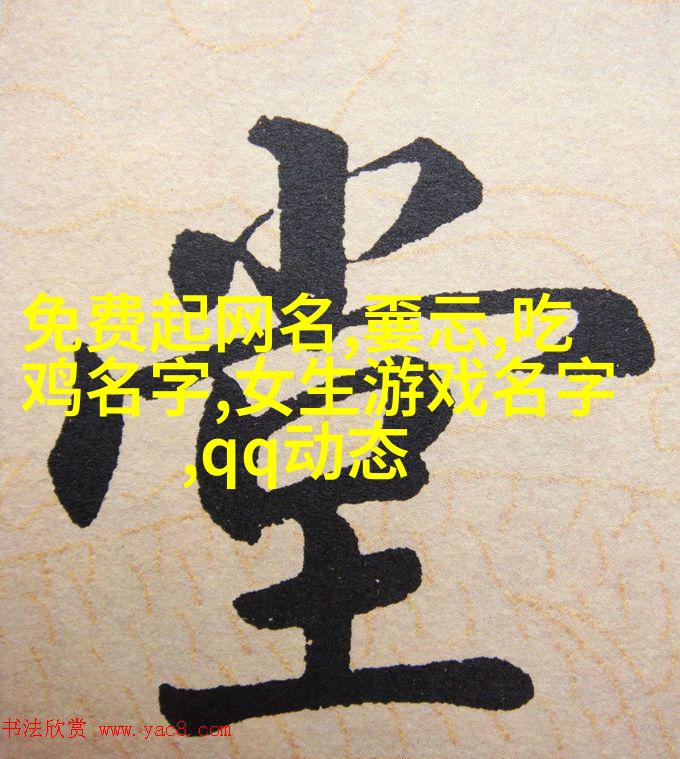 堂
免费起网名,嫑忈,吃
鸡名字,女生游戏名字
,qq动态
书法欣赏 www.yac8.com